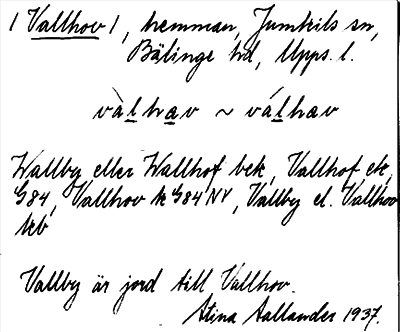 /Vallhov/, hemman, Jumkils sn,
Bälinge hd, Upps. l.
vàlhav ~ válhav
Wallby eller Wallhof bek, Vallhof ek,
G84, Vallhov k G84 NV, Vallby el. Vallhov
kb
Vallby är jord till Vallhov.
Stina Aallander 1937.